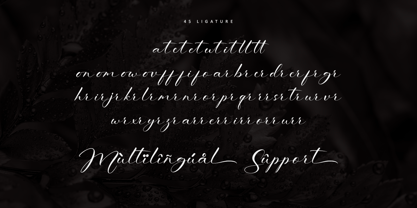 45 LIGATURE
at et ct ut it lt tt
on om ow ov ff fi fo ar br cr dr er fr gr
hr ir jr kr lr mr nr or pr qr rr sr tr ur vr
wr xr yr zr arr err irr orr urr
Mùltílíngúàl Sùpport